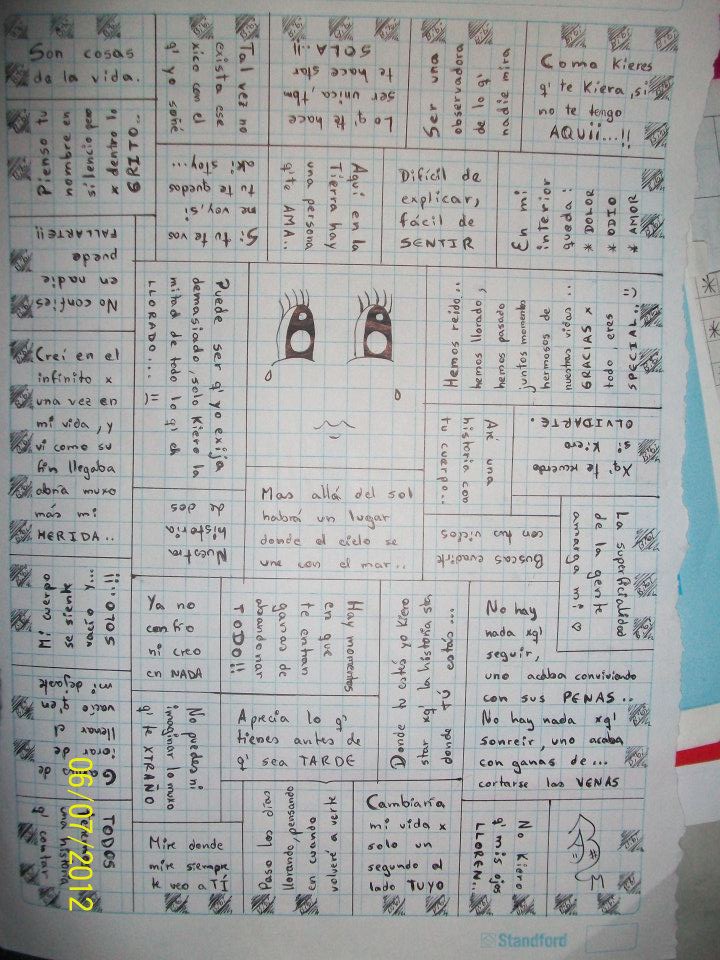 Son cosas
de la vida.
Tal vez no
exista ese
xico con el
q' yo soñe
Lo q' te hace
ser unica, tbm
te hace star
SOLA!!
Ser una
observadora
de lo q'
nadie mira
Como Kieres
q' te Kiera, si
no te tengo
AQUii...!!
Pienso tu
nombre en
silencio pero
x dentro lo
GRITO..
Si tu te vas
me voy, si
tu te quedas
aki stoy...
Aqui en la
Tierra hay
una persona
q' te AMA..
Difícil de
explicar,
fácil de
SENTIR
En mi
interior
queda:
* DOLOR
* ODIO
* AMOR
No confíes
en nadie
puede
FALLARTE!!
Puede ser q' yo exija
demasiado, solo Kiero la
mitad de todo lo q' eh
LLORADO....
Hemos reido..
hemos llorado,
hemos pasado
juntos momentos
hermosos de
nuestras vidas..
GRACIAS x
todo, eres
SPECIAL..
Creí en el
infinito x
una vez en
mi vida, y
vi como su
fin llegaba
abria muxo
más mi
HERIDA..
Nuestra
historia
de dos
Mas allá del sol
habrá un lugar
donde el cielo se
une con el mar..
Ai una
historia con
tu cuerpo..
Xq' te recuerdo
si Kiero
OLVIDARTE.
Buscas evadirte
con tus vicios
La superficialidad
de la gente
amarga mi
Mi cuerpo
se siente
vacio y...
SOLO!!!
Ya no
confío
ni creo
en NADA
Hay momentos
en que
te entran
ganas de
abandonar
TODO!!
Donde tu estés yo Kiero
star xq' la historia sta
donde TÚ estás...
No hay
nada xq'
seguir,
uno acaba conviviendo
con sus PENAS..
No hay nada xq'
sonreir, uno acaba
con ganas de...
cortarse las VENAS
de
llenar el
vacio q' en
mi dejaste
No puedes ni
imaginar lo muxo
q' te XTRAÑO
Aprecia lo q'
tienes antes de
q' sea TARDE
TODOS
una historia
q' contar
Mire donde
mire siempre
te veo a TÍ
Paso los dias
llorando, pensando
en cuando
volveré a verte
Cambiaría
mi vida x
solo un
segundo al
lado TUYO
No Kiero
q' mis ojos
LLOREN..
06/07/2012
Standford